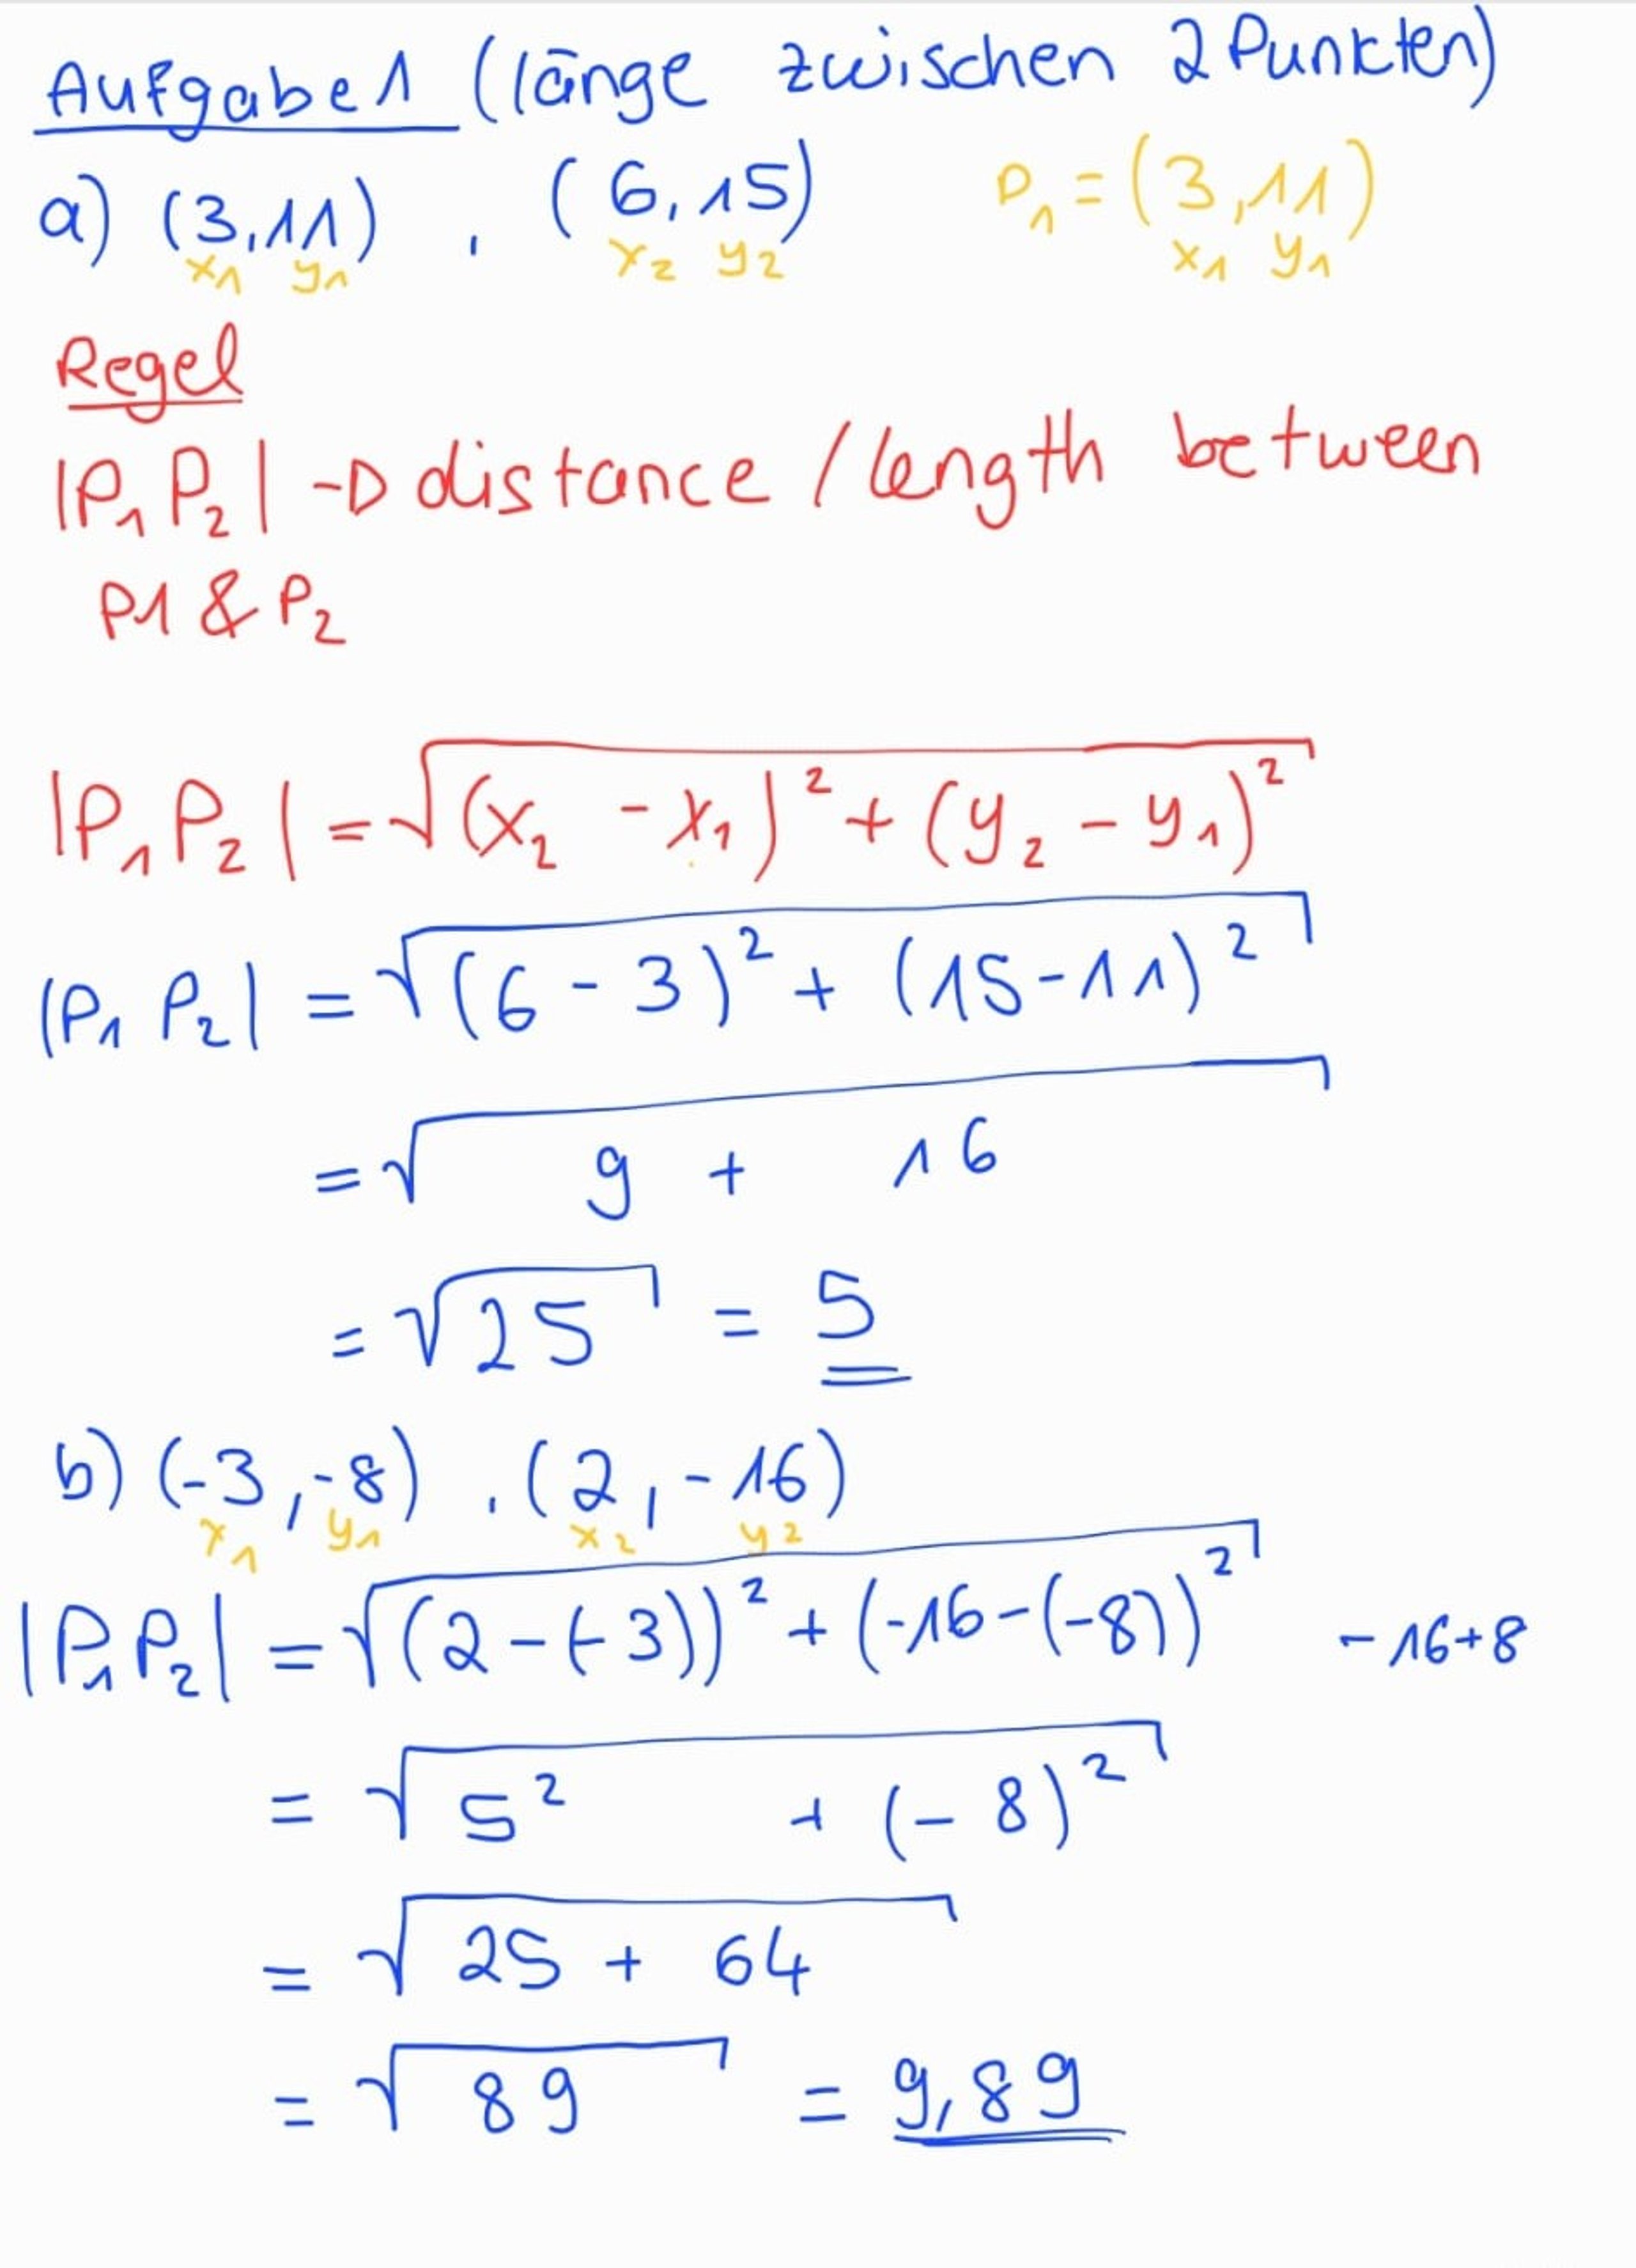 Aufgabe 1 (länge zwischen 2 Punkten)
a) (3,11) , (6,15) P₁ = (3,11)
x₁ y₁ x₂ y₂ x₁ y₁
Regel
|P₁ P₂| -D distance / length between
P1 & P₂
|P₁ P₂| = √(x₂ - x₁)² + (y₂ - y₁)²
|P₁ P₂| = √(6 - 3)² + (15 - 11)²
= √9 + 16
= √25 = 5
b) (-3,-8) , (2,-16)
x₁ y₁ x₂ y₂
|P₁ P₂| = √(2 - (-3))² + (-16 - (-8))² -16+8
= √5² + (-8)²
= √25 + 64
= √89 = 9,89